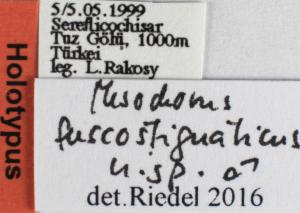 5/5.05.1999
Serefliçochisar
Tuz Gölü, 1000m
Türkei
leg. L.Rakosy
Holotypus
Mesochorus
fuscostigmaticus
n.sp. ♂
det.Riedel 2016